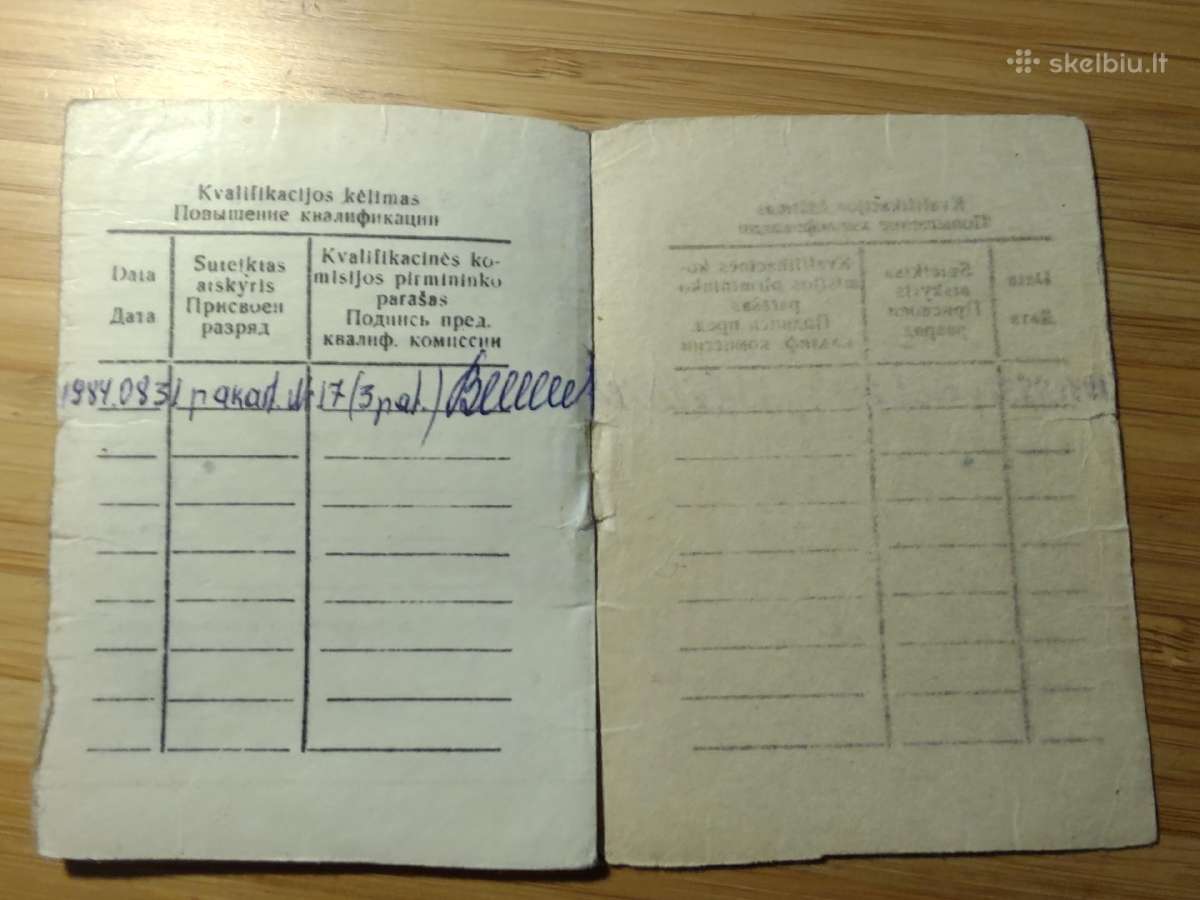 skelbiu.lt
Kvalifikacijos kėlimas
Повышение квалификации
Data
Дата
Suteiktas
atskyris
Присвоен
разряд
Kvalifikacinės ko-
misijos pirmininko
parašas
Подпись пред.
квалиф. комиссии
1984.083 pakat. 17 (3 pat.)